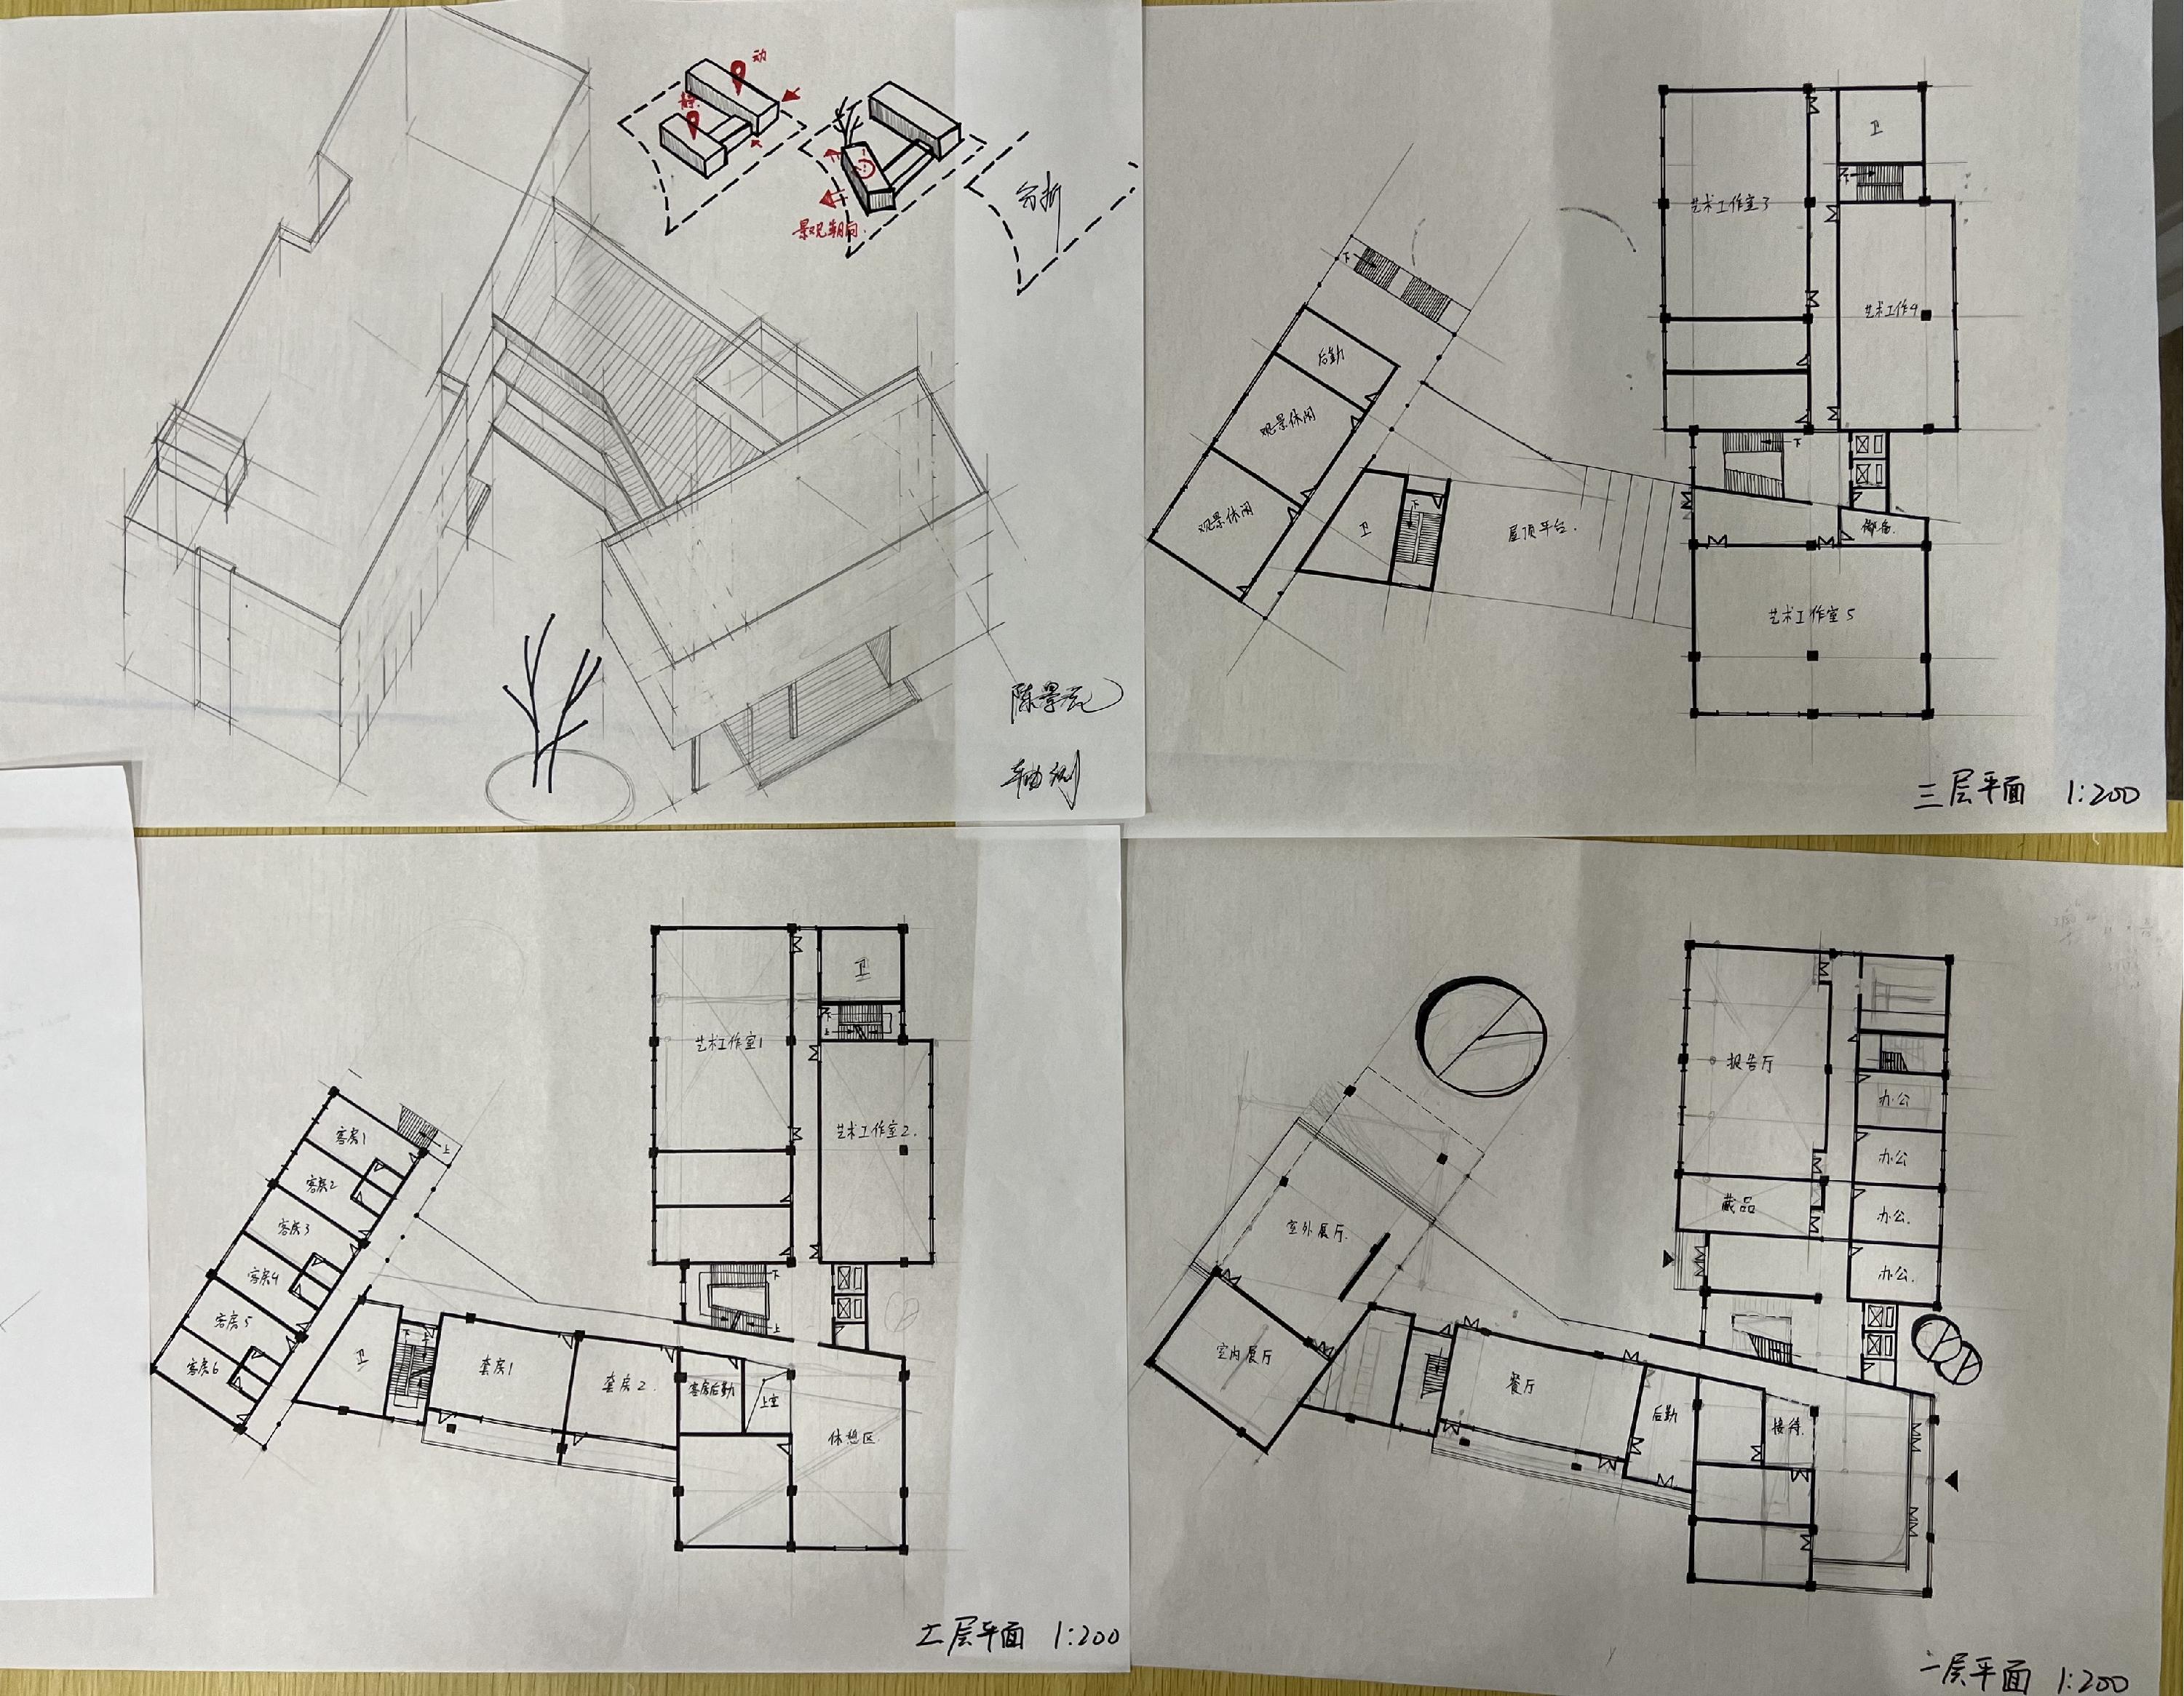 动
静
景观朝向
分析
轴测
卫
下
艺术工作室3
艺术工作4
下
后勤
观景休闲
观景休闲
卫
下
屋顶平台
下
储备
艺术工作室5
三层平面 1:200
卫
下
上
艺术工作室1
艺术工作室2
客房1
上
客房2
客房3
客房4
客房5
客房6
下
上
卫
下 上
套房1
套房2
客房后勤
上空
休憩区
二层平面 1:200
报告厅
办公
办公
藏品
办公
办公
室外展厅
室内展厅
餐厅
后勤
接待
一层平面 1:200